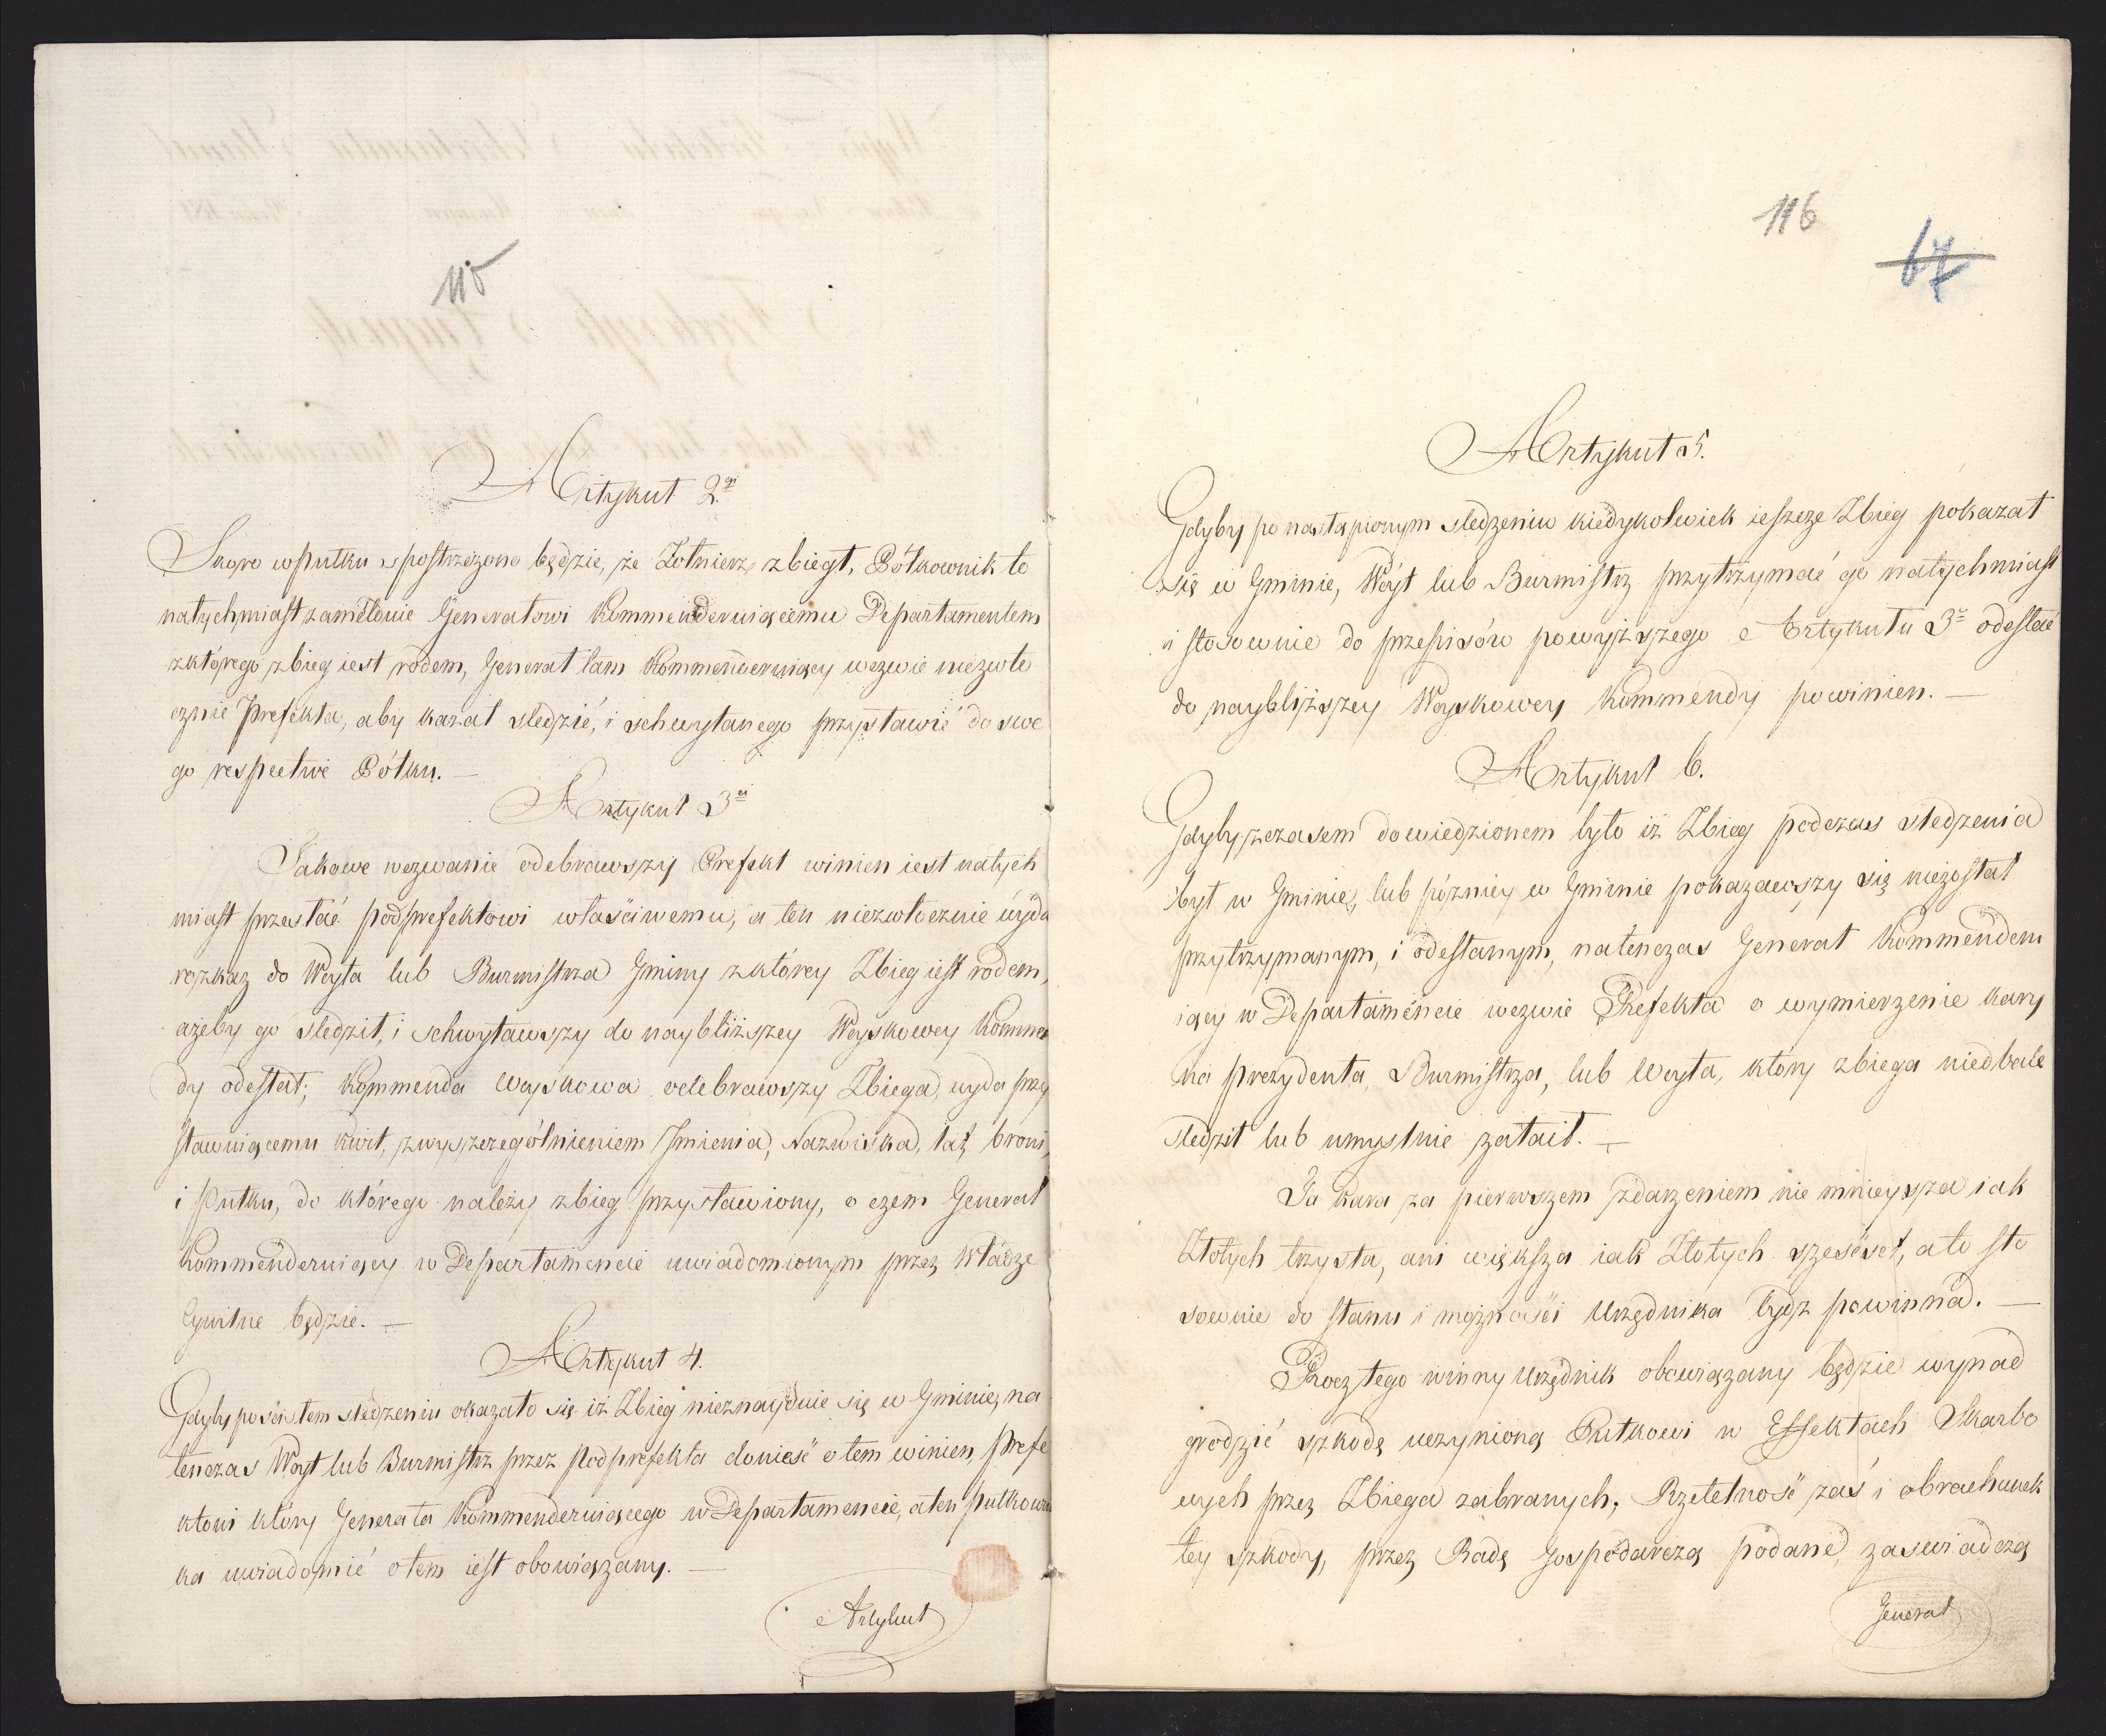 115
Artykuł 2gi
Skoro w Pułku spostrzeżono będzie, że Zołnierz zbiegł, Półkownik to
natychmiast zamelduie Generałowi Kommenderuiącemu Departamentem
z którego zbieg iest rodem, Generał tam Kommenderuiący wezwie niezwło
cznie Prefekta, aby kazał sledzić, i schwytanego przystawić do swe
go respective Półku. —
Artykuł 3ci
Takowe wezwanie odebrawszy Prefekt winien iest natych
miast przesłać podprefektowi właściwemu, a ten niezwłocznie wyda
rozkaz do Woyta lub Burmistrza Gminy z którey Zbieg iest rodem,
ażeby go sledził, i schwytawszy do naybliższey Woyskowey Kommen
dy odesłał; Kommenda Woyskowa odebrawszy Zbiega, wyda przy
stawuiącemu kwit, z wyszczególnieniem Imienia, Nazwiska, tąż broni,
i Pułku, do którego należy zbieg przystawiony, o czem Generał
Kommenderuiący w Departamencie uwiadomionym przez Władze
Cywilne będzie. —
Artykuł 4.
Gdyby po ścisłem sledzeniu okazało się iż Zbieg nieznayduie się w Gminie, na
tenczas Woyt lub Burmistrz przez Podprefekta donieść o tem winien, Prefe
ktowi który Generała Kommenderuiącego w Departamencie, a ten pułkowni
ka uwiadomić o tem iest obowiązany. —
Artykuł
116
67
Artykuł 5.
Gdyby po nastąpionym sledzeniu kiedykolwiek ieszcze Zbieg pokazał
się w Gminie, Woyt lub Burmistrz przytrzymać go natychmiast
i stosownie do przepisów powyższego Artykułu 3o odesłać
do naybliższey Woyskowey Kommendy powinien. —
Artykuł 6.
Gdyby z czasem dowiedzionem było iż Zbieg podczas sledzenia
był w Gminie, lub pózniey w Gminie pokazawszy się niezostał
przytrzymanym, i odesłanym, natenczas Generał Kommenderu
iący w Departamencie wezwie Prefekta o wymierzenie kary
na prezydenta, Burmistrza, lub Woyta, który zbiega niedbale
sledził lub umyslnie zataił. —
Ta kara za pierwszem zdarzeniem nie mnieysza iak
Złotych trzysta, ani większa iak Złotych szescset, a to sto
sownie do stanu i możności Urzędnika bydz powinna. —
Procz tego winny Urzędnik obowiązany będzie wynad
grodzić szkodę uczynioną Pułkowi w Effektach Skarbo
wych przez Zbiega zabranych, Rzetelność zaś i obrachunek
tey szkody, przez Radę Gospodarczą podane, zaswiadczą
Generał